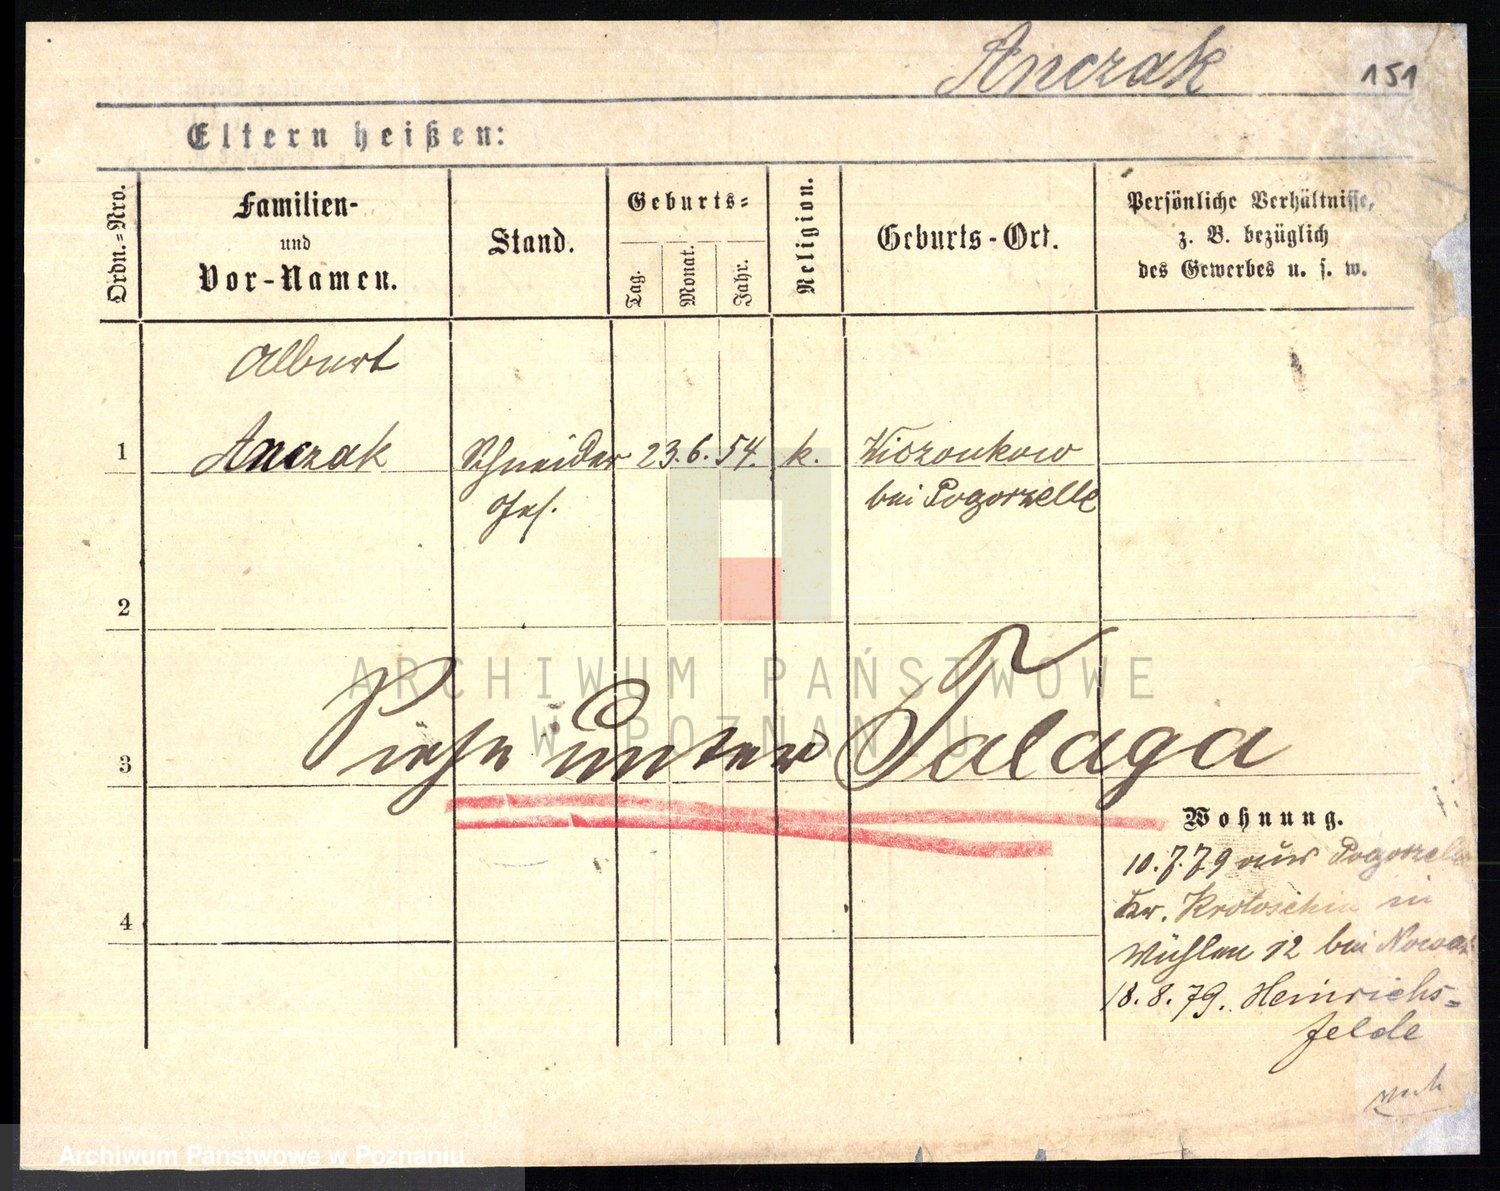 Anczak 151
Eltern heißen:
Ordn.=Nro.
Familien-
und
Vor-Namen.
Stand.
Geburts=
Tag.
Monat.
Jahr.
Religion.
Geburts-Ort.
Persönliche Verhältnisse,
z. B. bezüglich
des Gewerbes u. s. w.
Albert
1 Anczak Schneider 23. 6. 54. k.
Ges. bei Pogorzelle
2
Siehe unter Talaga
3
Wohnung.
10.7.79 aus
Kr. Krotoschin in
4
12 bei
18.8.79. Heinrichs=
felde
ARCHIWUM PAŃSTWOWE
W POZNANIU
Archiwum Państwowe w Poznaniu